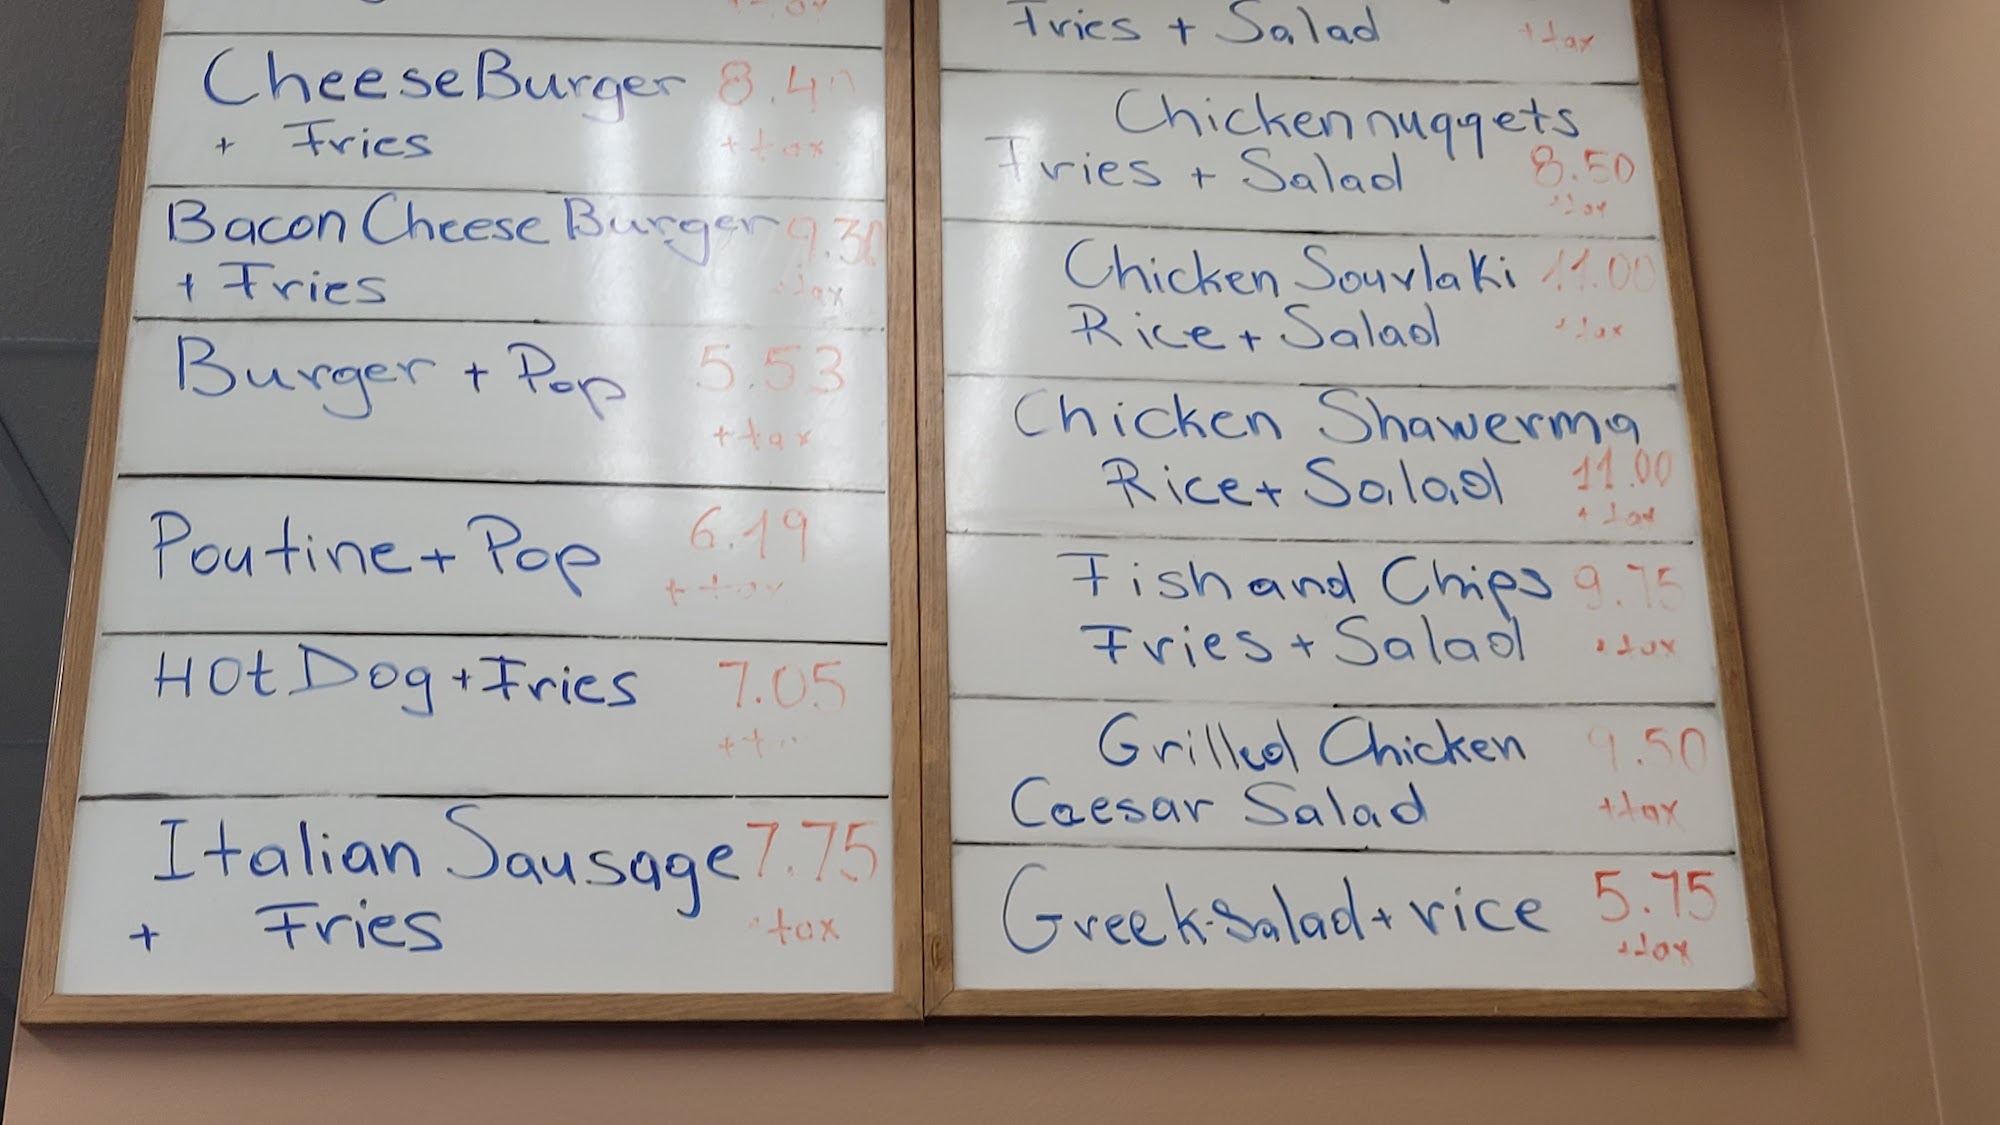 CheeseBurger 8.40
+ Fries + tax
Bacon Cheese Burger 9.30
+ Fries +tax
Burger + Pop 5.53
+ tax
Poutine + Pop 6.19
+ tax
Hot Dog + Fries 7.05
Italian Sausage 7.75
+ Fries +tax
Fries + Salad +tax
Chicken nuggets
Fries + Salad 8.50
+tax
Chicken Sourlaki 11.00
Rice + Salad +tax
Chicken Shawerma
Rice + Salad 11.00
+ tax
Fish and Chips 9.75
Fries + Salad +tax
Grilled Chicken 9.50
Caesar Salad +tax
Greek-Salad + rice 5.75
+tax